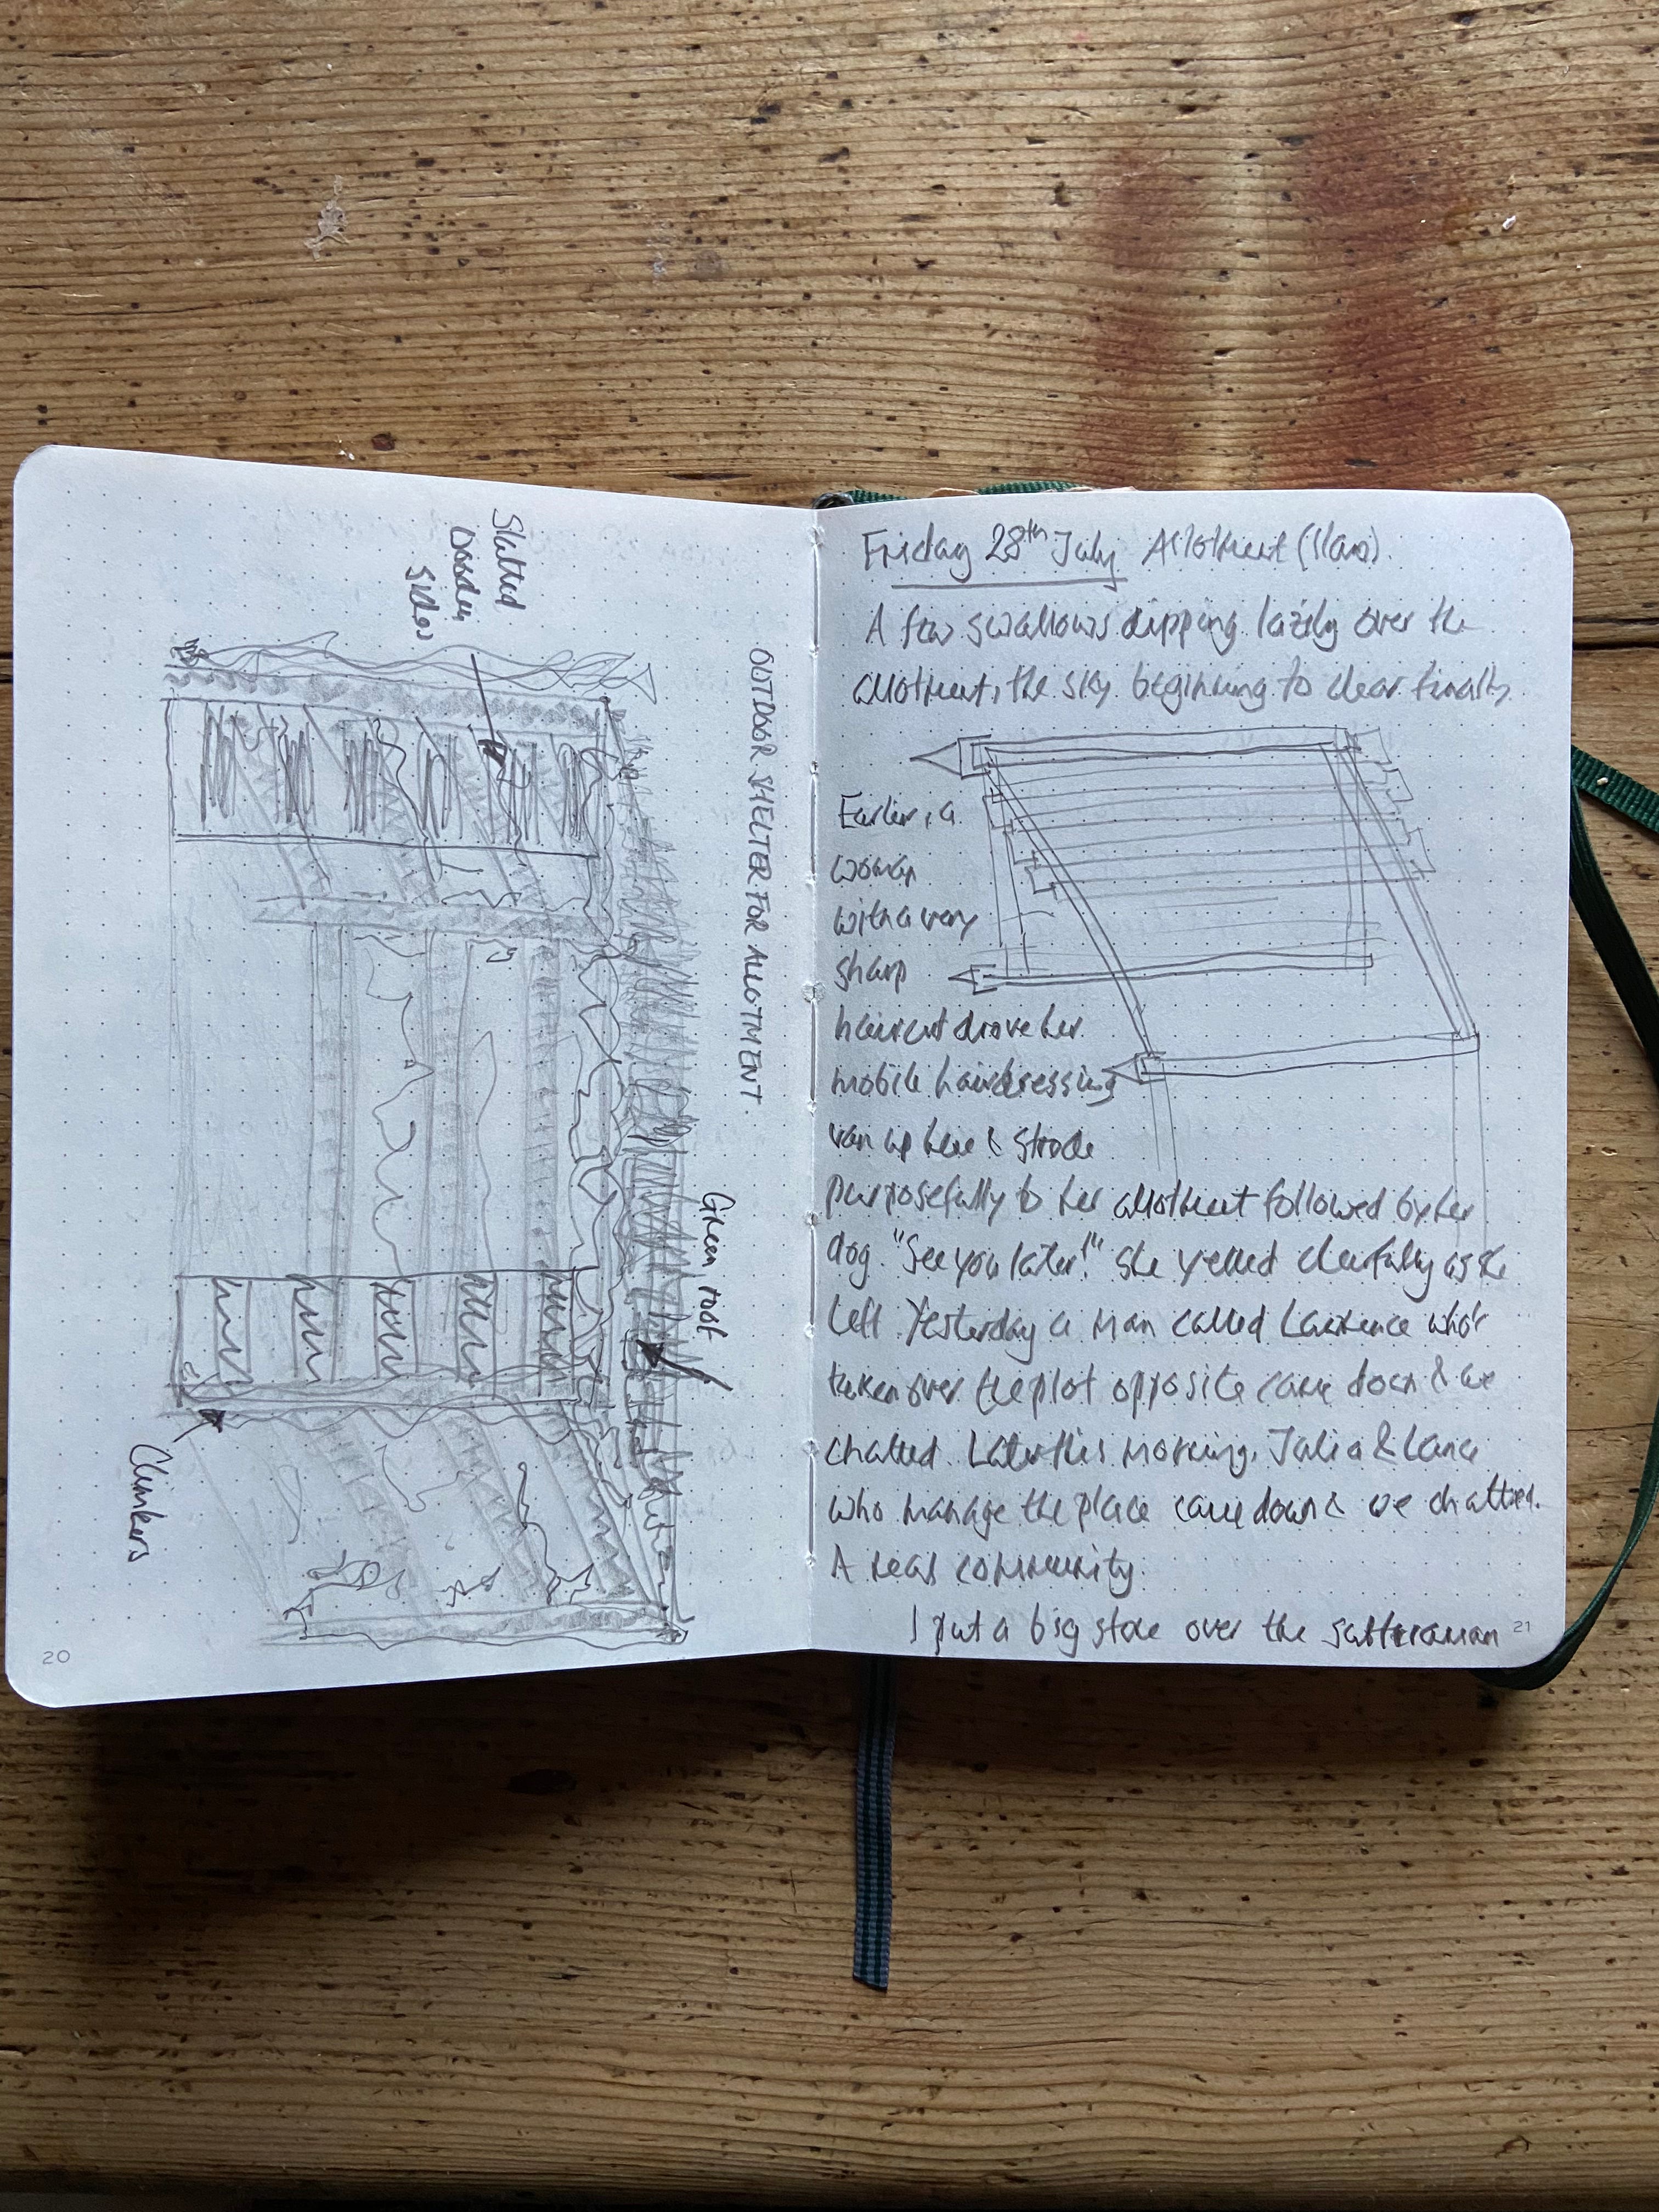 Slatted
Wooden
Sides
OUTDOOR SHELTER FOR ALLOTMENT.
Green roof
Climbers
20
Friday 28th July Allotment (11am).
A few swallows dipping lazily over the
allotment, the sky beginning to clear finally.
Earlier, a
woman
with a very
sharp
haircut drove her
mobile hairdressing
van up here & strode
purposefully to her allotment followed by her
dog. "See you later!" she yelled cheerfully as she
left. Yesterday a man called Lawrence who's
taken over the plot opposite came down & we
chatted. Later this morning, Julia & Lance
who manage the place came down & we chatted.
A real community.
I put a big stone over the subterranean
21